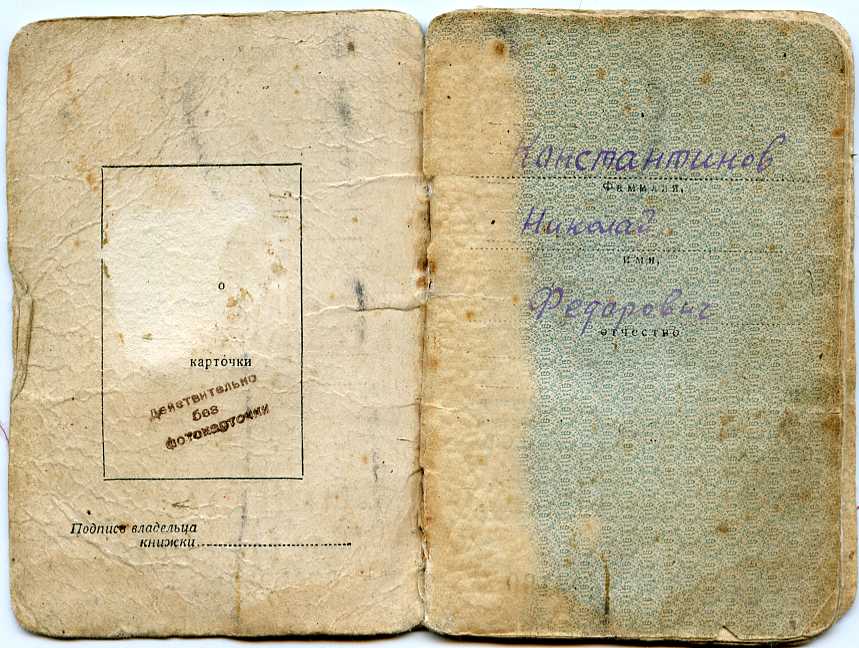 о
карточки
Действительно
без
фотокарточки
Подпись владельца
книжки
Константинов
Фамилия,
Николай
имя,
Федарович
отчество